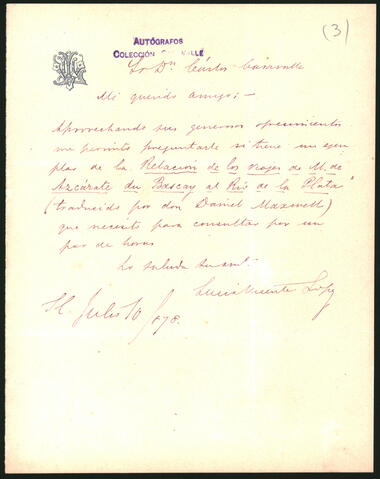 (3)
AUTÓGRAFOS
COLECCIÓN
Sr Dn Cárlos Casavalle
Mi querido amigo:-
Aprovechando sus generosos ofrecimientos
me permito preguntarle si tiene un ejem-
plar de la "Relacion de los viajes de M. de
Azcárate du Bascay al Rio de la Plata"
(traducido por don Daniel Maxwell)
que necesito para consultar por un
par de horas
Lo saluda
Lucio Vicente Lopez
Julio 10/878.